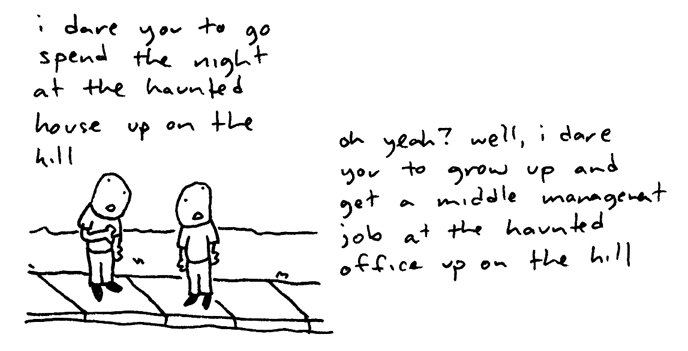 i dare you to go
spend the night
at the haunted
house up on the
hill
oh yeah? well, i dare
you to grow up and
get a middle management
job at the haunted
office up on the hill